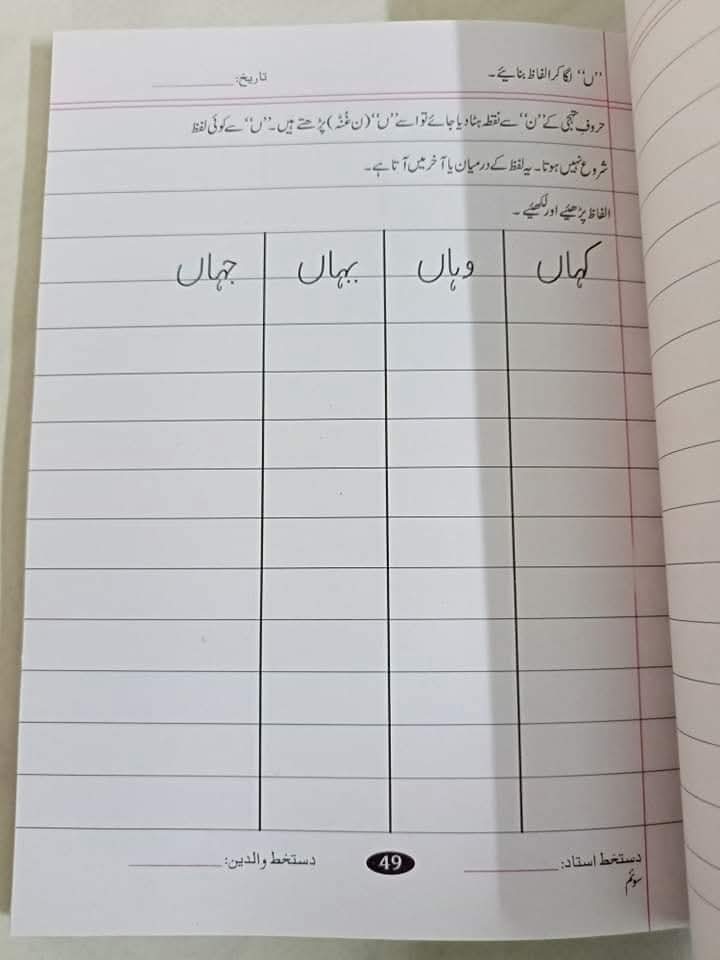 ”ں“ لگا کر الفاظ بنایئے۔ تاریخ:
حروفِ تہجی کے ”ن“ سے نقطہ ہٹا دیا جائے تو اسے ”ں“ (ن غُنّہ) پڑھتے ہیں۔ ”ں“ سے کوئی لفظ
شروع نہیں ہوتا۔ یہ لفظ کے درمیان یا آخر میں آتا ہے۔
الفاظ پڑھئیے اور لکھئیے۔
کہاں وہاں یہاں جہاں
دستخط استاد: 49 دستخط والدین:
سوئم